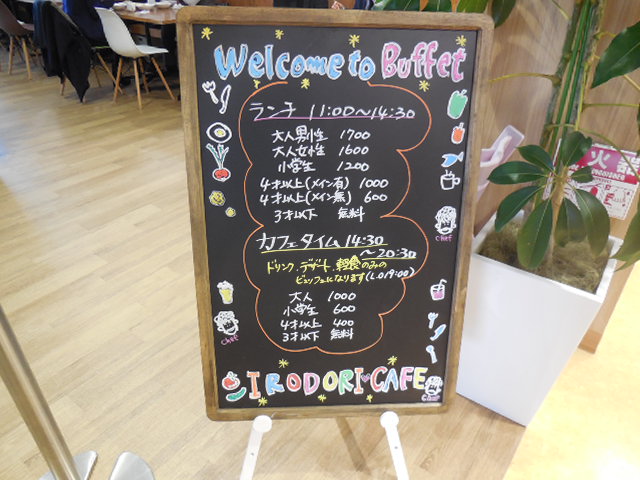 Welcome to Buffet
ランチ 11:00〜14:30
大人男性 1700
大人女性 1600
小学生 1200
4才以上(メイン有) 1000
4才以上(メイン無) 600
3才以下 無料
カフェタイム 14:30
〜20:30
ドリンク、デザート、軽食のみの
ビュッフェになります(L.O19:00)
大人 1000
小学生 600
4才以上 400
3才以下 無料
IRODORI CAFE
chef
chef
chef
火器